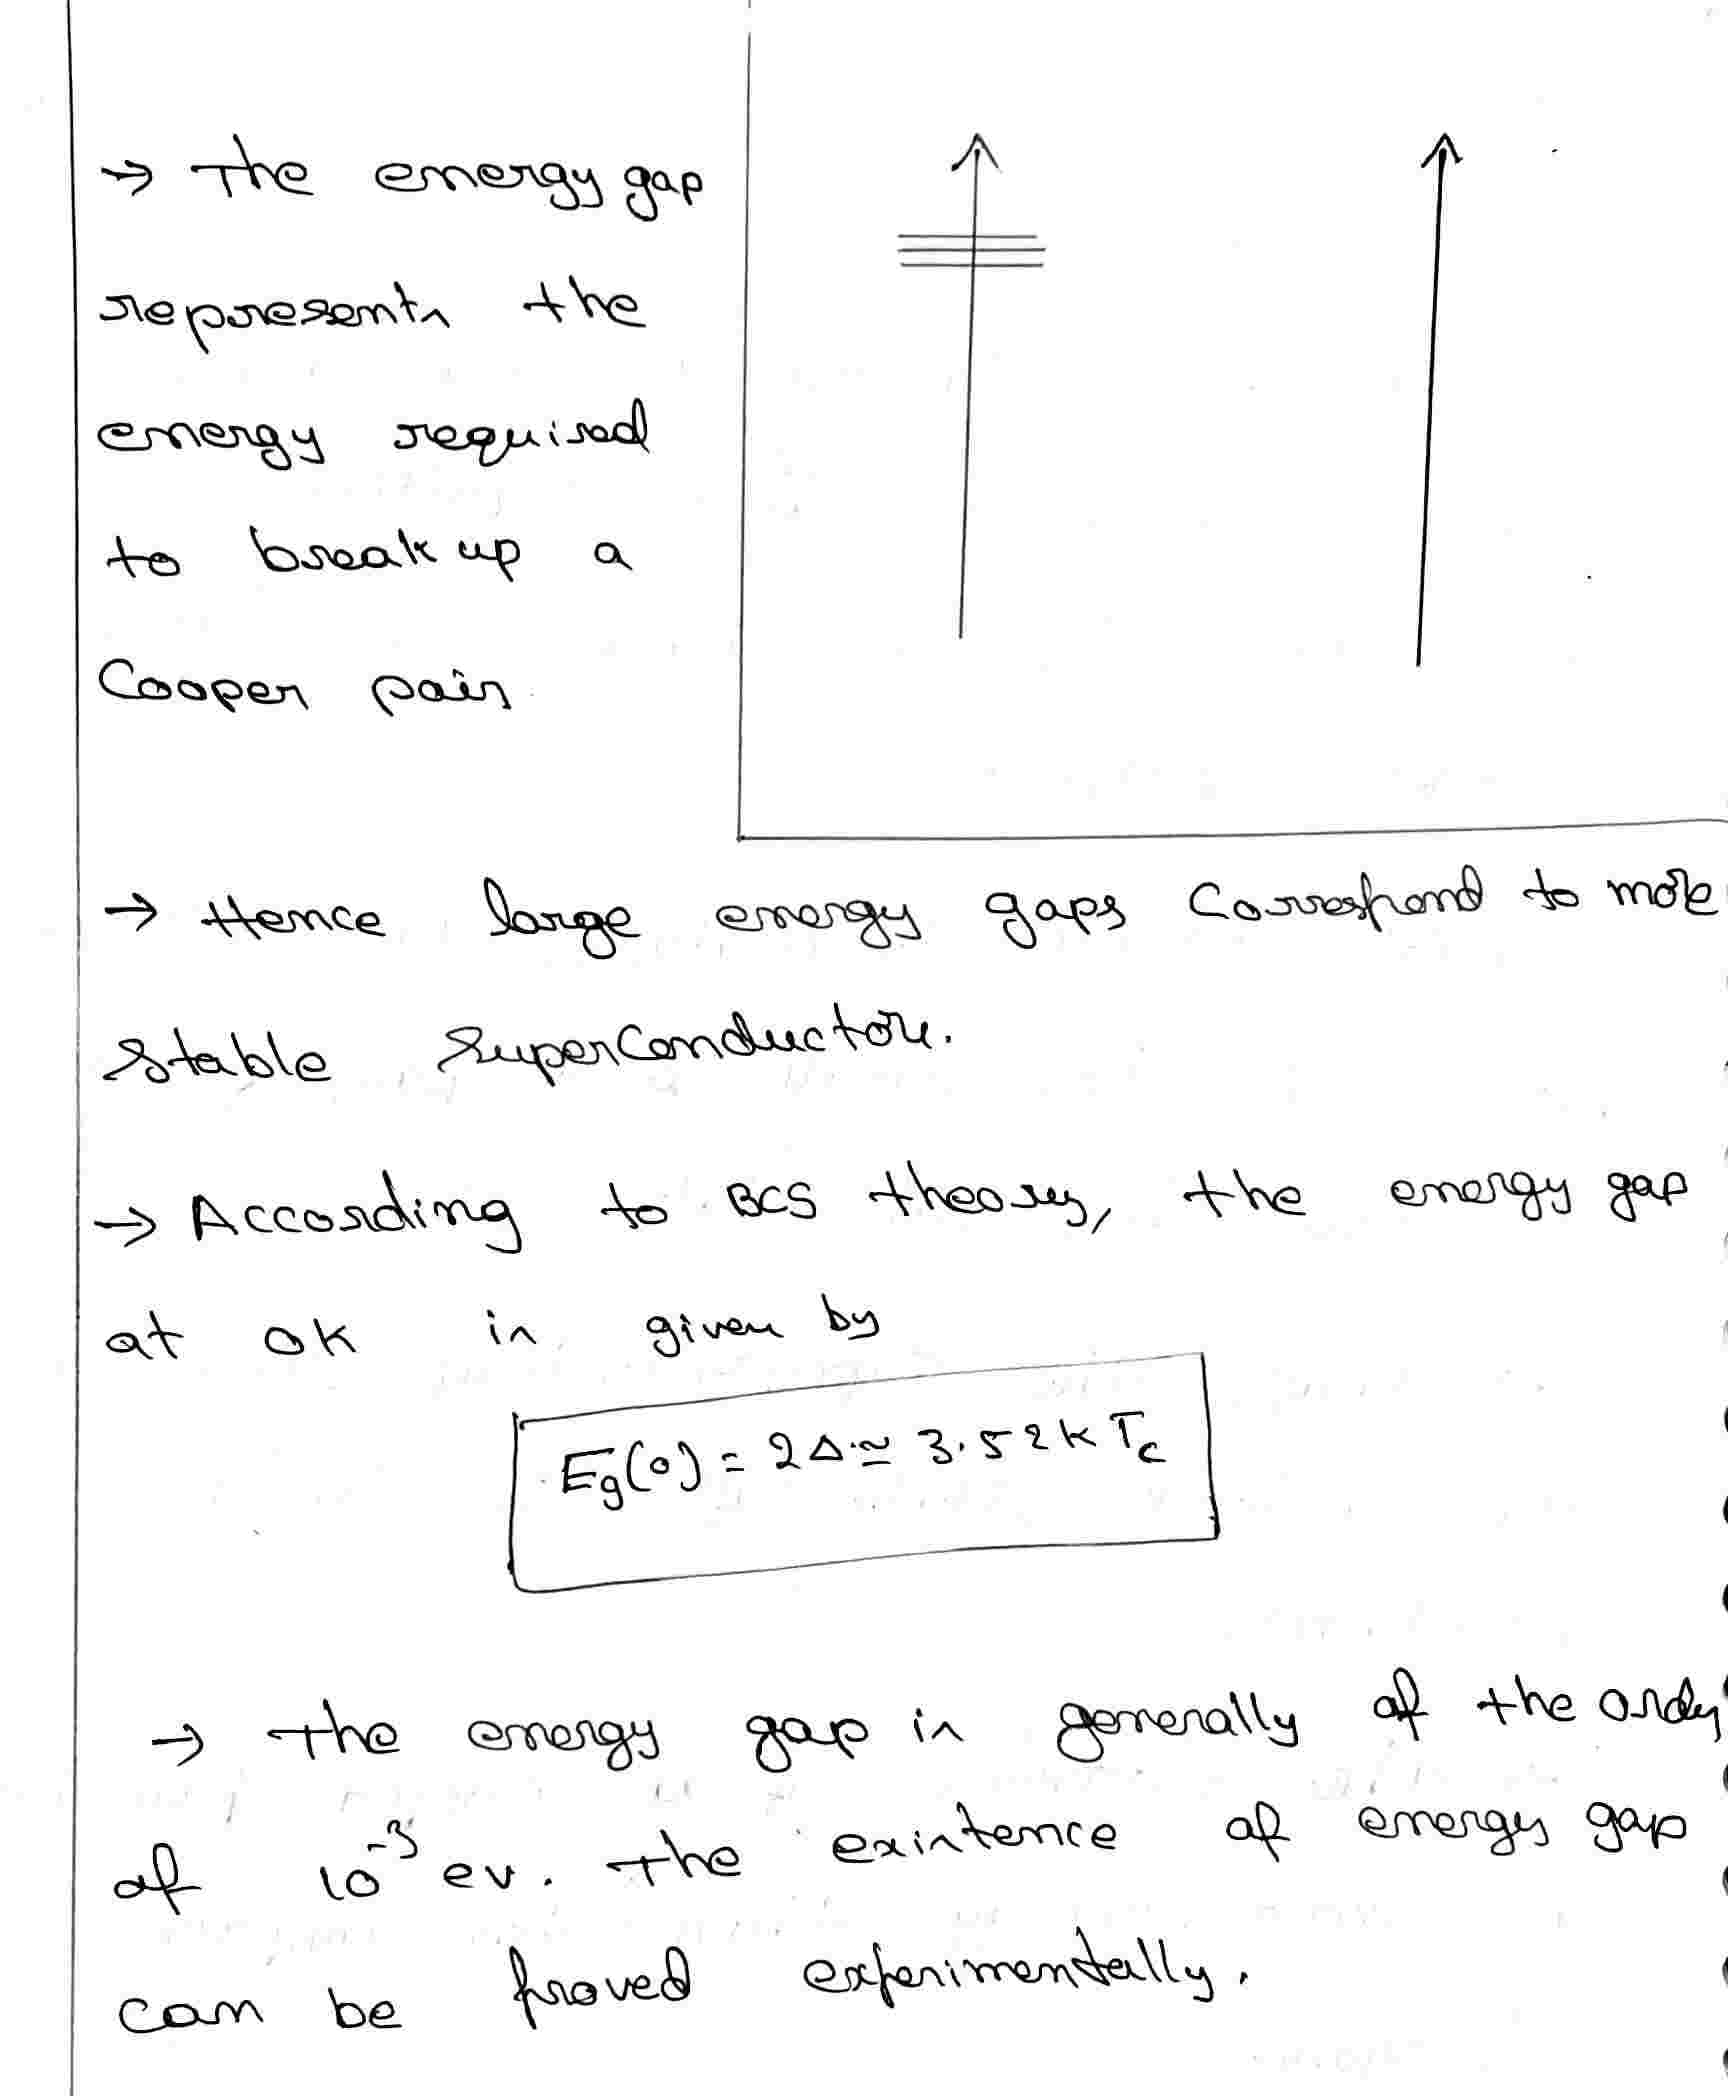 → The energy gap
represents the
energy required
to break up a
Cooper pair
→ Hence large energy gaps Correspond to more
Stable Superconductors.
→ According to BCS theory, the energy gap
at 0K is given by
Eg(0) = 2Δ ≃ 3.52 k Tc
→ The energy gap is generally of the order
of 10⁻³ ev. The existence of energy gap
can be proved experimentally.